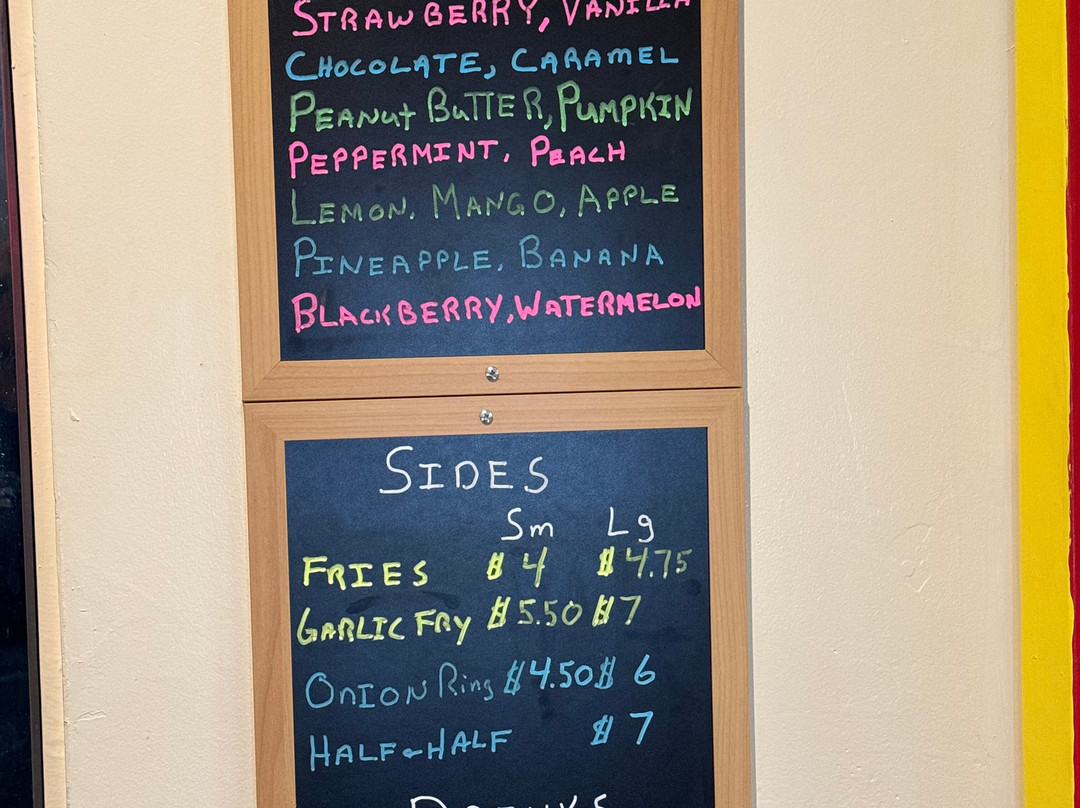 STRAWBERRY, VANILLA
CHOCOLATE, CARAMEL
PEANUT BUTTER, PUMPKIN
PEPPERMINT, PEACH
LEMON, MANGO, APPLE
PINEAPPLE, BANANA
BLACKBERRY, WATERMELON
SIDES
Sm Lg
FRIES $4 $4.75
GARLIC FRY $5.50 $7
ONION Ring $4.50 $6
HALF & HALF $7
DRINKS